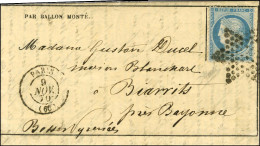 PAR BALLON MONTÉ.
Madame Gustave Ducel
maison Blanchard
à Biarritz
près Bayonne
Basses Pyrénées
PARIS
9
NOV.
70
(60)